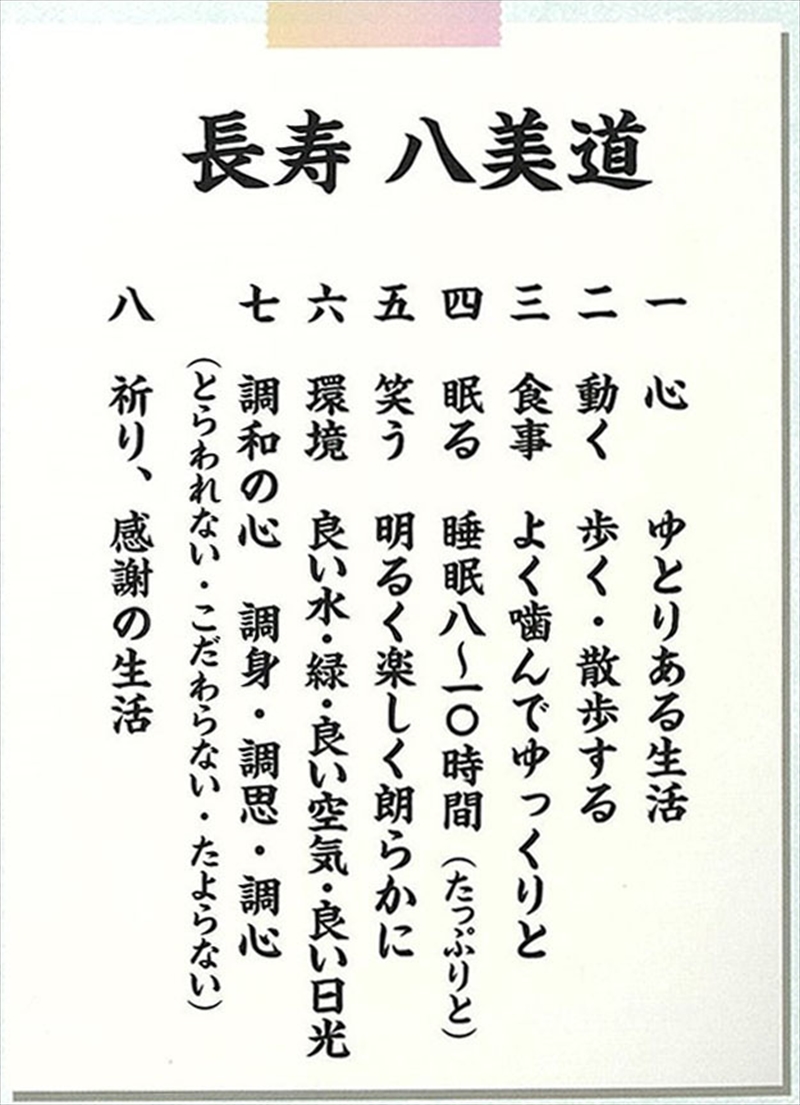 長寿 八美道
一 心 ゆとりある生活
二 動く 歩く・散歩する
三 食事 よく噛んでゆっくりと
四 眠る 睡眠八～一〇時間（たっぷりと）
五 笑う 明るく楽しく朗らかに
六 環境 良い水・緑・良い空気・良い日光
七 調和の心 調身・調思・調心
（とらわれない・こだわらない・たよらない）
八 祈り、感謝の生活